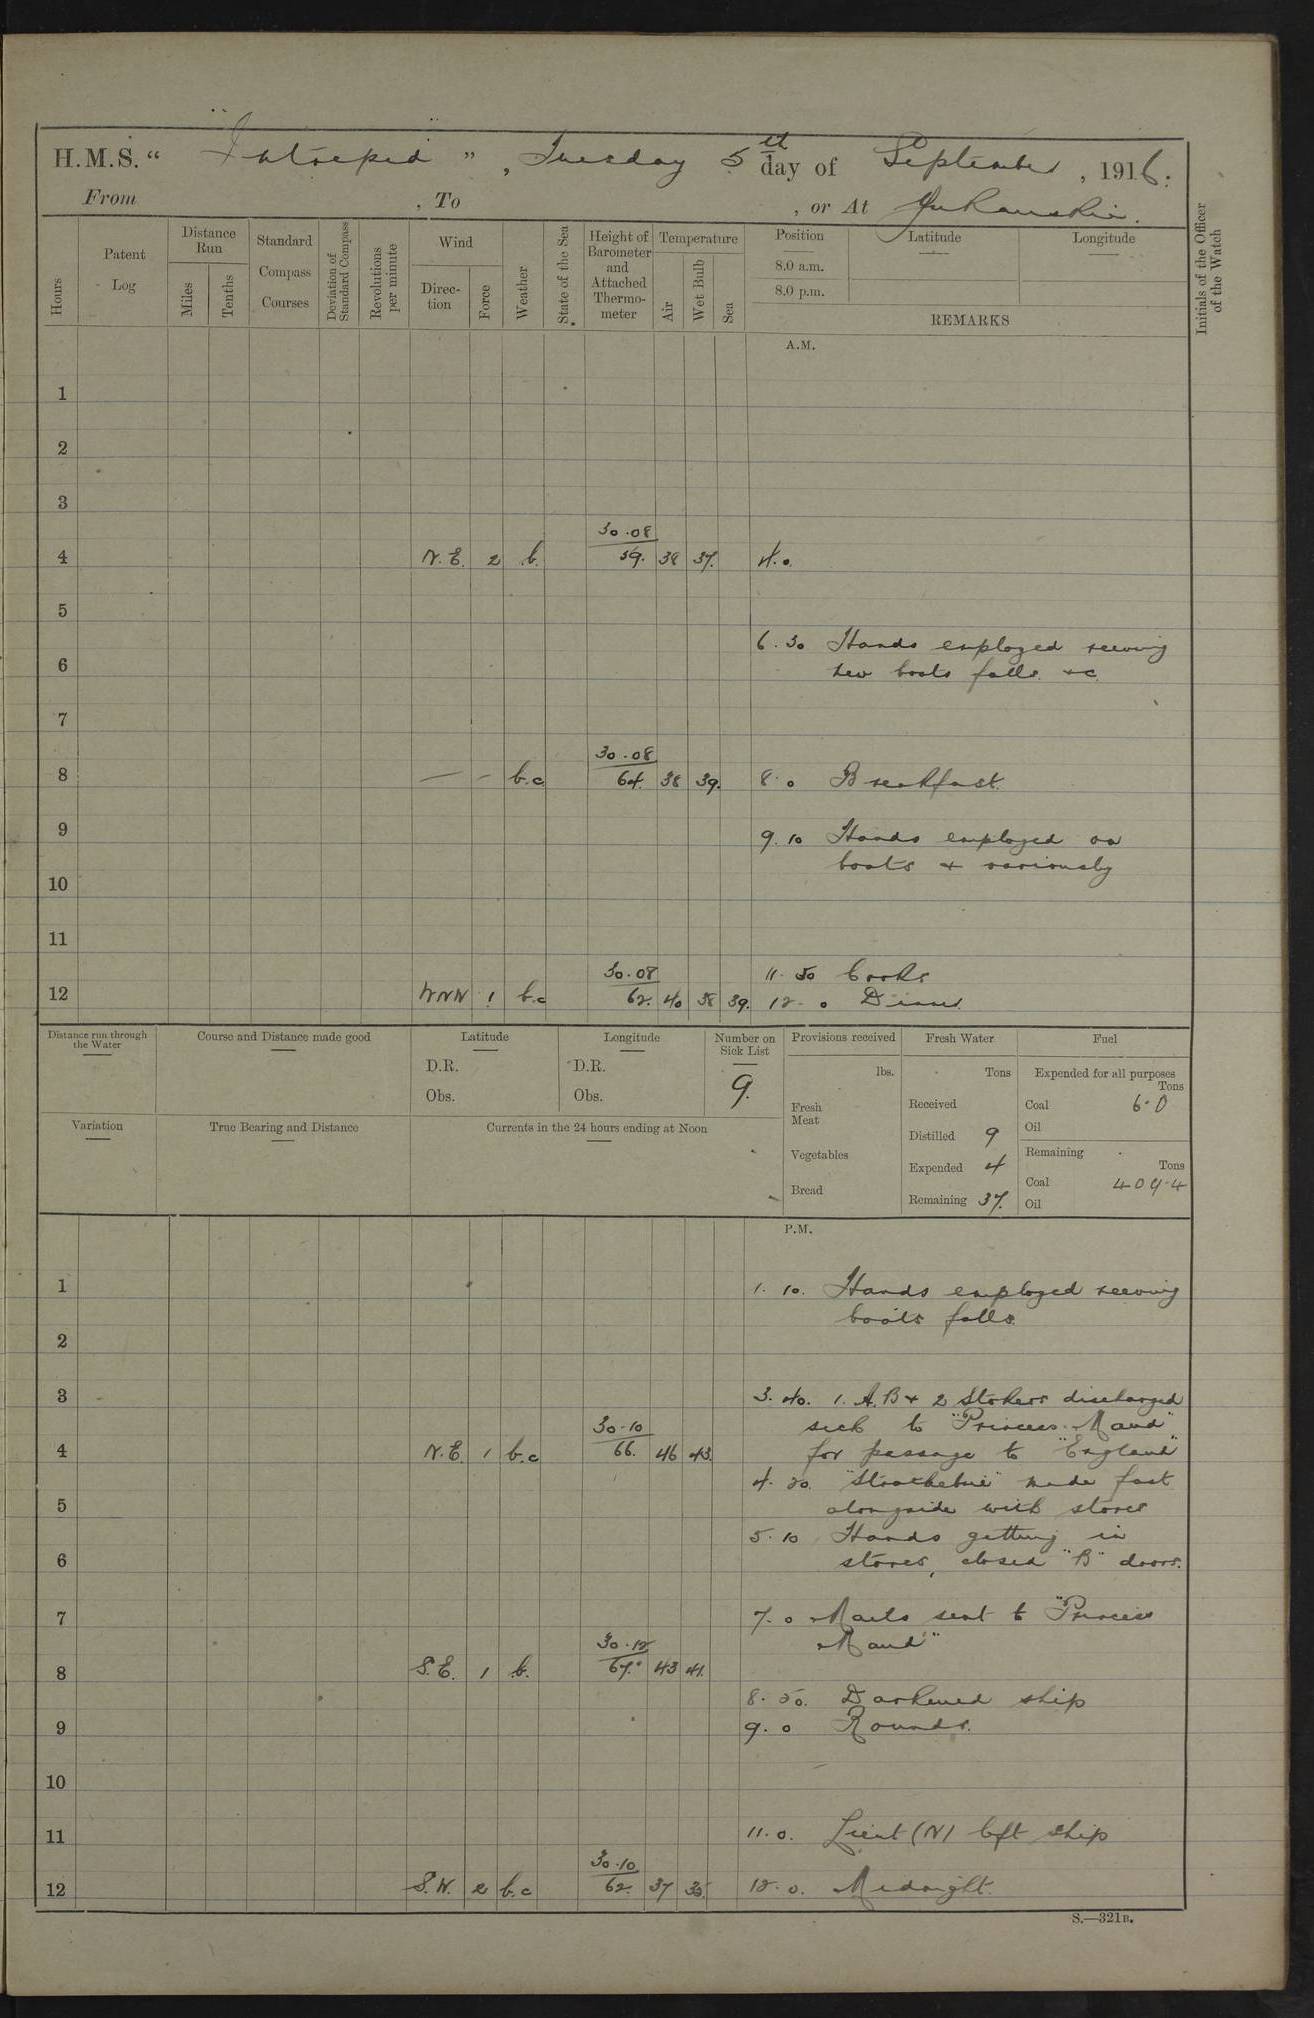 H.M.S. "Intrepid", Tuesday 5th day of September, 1916.
From , To , or At Yukanskie.
Hours
Patent Log
Distance Run
Miles
Tenths
Standard Compass Courses
Deviation of Standard Compass
Revolutions per minute
Wind
Direction
Force
Weather
State of the Sea
Height of Barometer and Attached Thermometer
Temperature
Air
Wet Bulb
Sea
Position
8.0 a.m.
8.0 p.m.
Latitude
Longitude
REMARKS
Initials of the Officer of the Watch
A.M.
1
2
3
30.08
4 N.E. 2 b. 59. 38 37. 4.0.
5
6.30 Hands employed reeving
6 new boats falls &c.
7
30.08
8 — - b.c 64. 38 39. 8.0 Breakfast.
9 9.10 Hands employed on
boats & variously
10
11
30.08 11.50 Cooks
12 1 b.c 62. 40 38 39. 12.0 Dinner.
Distance run through the Water
Course and Distance made good
Latitude
D.R.
Obs.
Longitude
D.R.
Obs.
Number on Sick List
9.
Provisions received
lbs.
Fresh Meat
Vegetables
Bread
Fresh Water
Tons
Received
Distilled 9
Expended 4
Remaining 37.
Fuel
Expended for all purposes
Tons
Coal 6.0
Oil
Remaining
Tons
Coal 409.4
Oil
Variation
True Bearing and Distance
Currents in the 24 hours ending at Noon
P.M.
1 1.10. Hands employed reeving
boats falls.
2
3 3.40. 1. A.B & 2 Stokers discharged
30.10 sick to "Princess Maud"
4 N.E. 1 b.c 66. 46 43. for passage to "England"
4.20. made fast
5 alongside with stores
5.10 Hands getting in
6 stores, closed "B" doors.
7 7.0 Mails sent to "Princess
30.12 Maud"
8 S.E. 1 b. 67. 43 41.
8.50. Darkened ship
9 9.0 Rounds.
10
11 11.0. Lieut (N) left ship
30.10
12 S.W. 2 b.c 62. 37 35. 12.0. Midnight.
S.—321B.